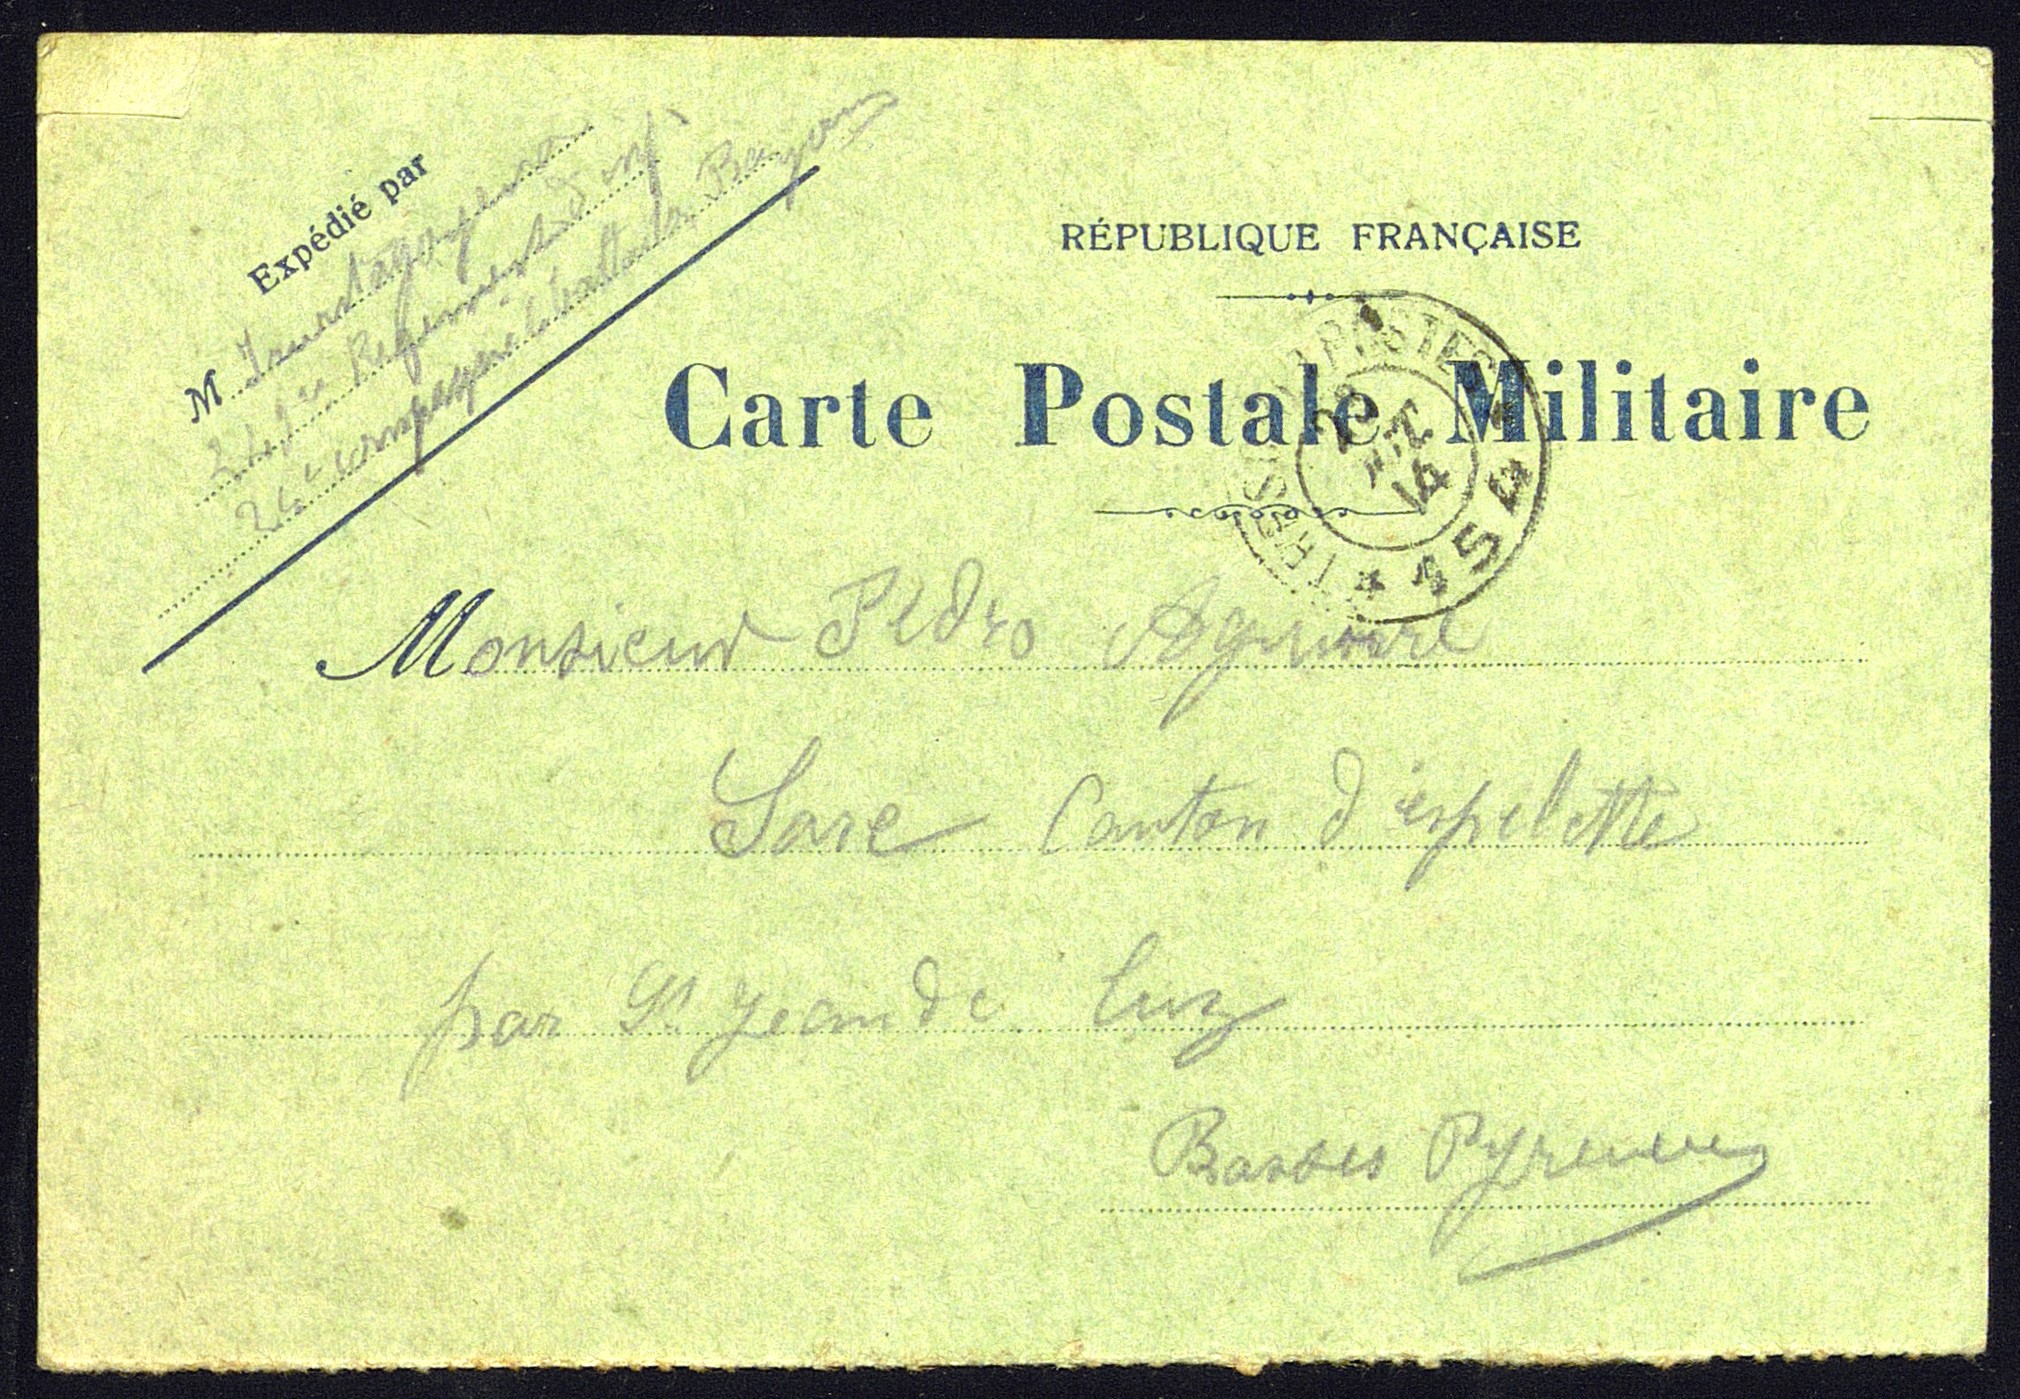 Expédié par
M
Regiment d'inf
RÉPUBLIQUE FRANÇAISE
Carte Postale Militaire
TRÉSOR ET POSTES
14
* 154 *
Monsieur Pedro Aguirre
Sare Canton d'espelette
par St Jean de Luz
Basses Pyrenees